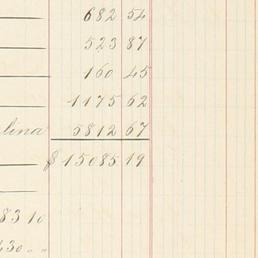 682 54
523 87
160 45
1175 62
lina 5812 67
$15085 19
83 10
430 〃 〃